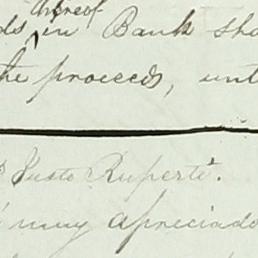 thereof
in Bank sho
the proceeds, unt
Justo Ruperti.
muy apreciado